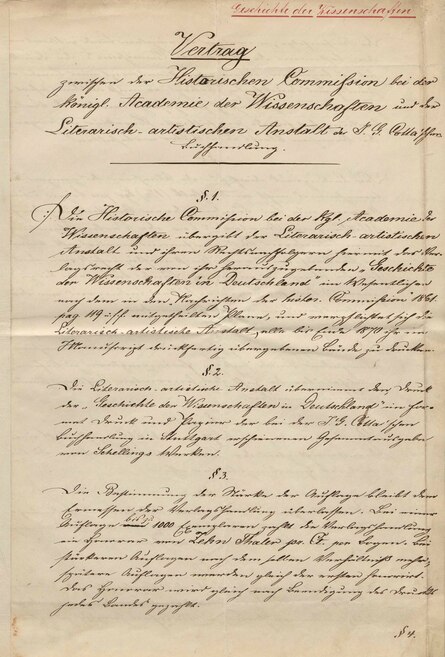 Geschichte der Wissenschaften
Vertrag
zwischen der Historischen Commission bei der
königl. Academie der Wissenschaften und der
Literarisch-artistischen Anstalt der J. G. Cotta'schen
Buchhandlung.
§ 1.
Die Historische Commission bei der kgl. Academie der
Wissenschaften übergibt der Literarisch-artistischen
Anstalt und ihren Rechtsnachfolgern hiermit das Ver-
lagsrecht der von ihr herauszugebenden „Geschichte
der Wissenschaften in Deutschland" im Wesentlichen
nach dem in den Nachrichten der histor. Commission 1861
pag 119 mitgetheilten Plane, und verpflichtet sich die
Literarisch-artistische Anstalt, alle bis Ende 1870 ihr im
Manuscript druckfertig übergebenen Bände zu drucken.
§ 2.
Die Literarisch-artistische Anstalt übernimmt den Druck
der „Geschichte der Wissenschaften in Deutschland" im For-
mat Druck und Papier der bei der J. G. Cotta'schen
Buchhandlung in Stuttgart erschienenen Gesammtausgabe
von Schellings Werken.
§ 3.
Die Bestimmung der Stärke der Auflage bleibt dem
Ermessen der Verlagshandlung überlassen. Bei einer
Auflage bis zu 1000 Exemplaren zahlt die Verlagshandlung
ein Honorar von Zehn Thaler pr. Ct. pro Bogen. Bei
stärkeren Auflagen nach demselben Verhältniß mehr,
spätere Auflagen werden gleich der ersten honorirt.
Das Honorar wird gleich nach Beendigung des Drucks
jedes Bandes gezahlt.
§ 4.